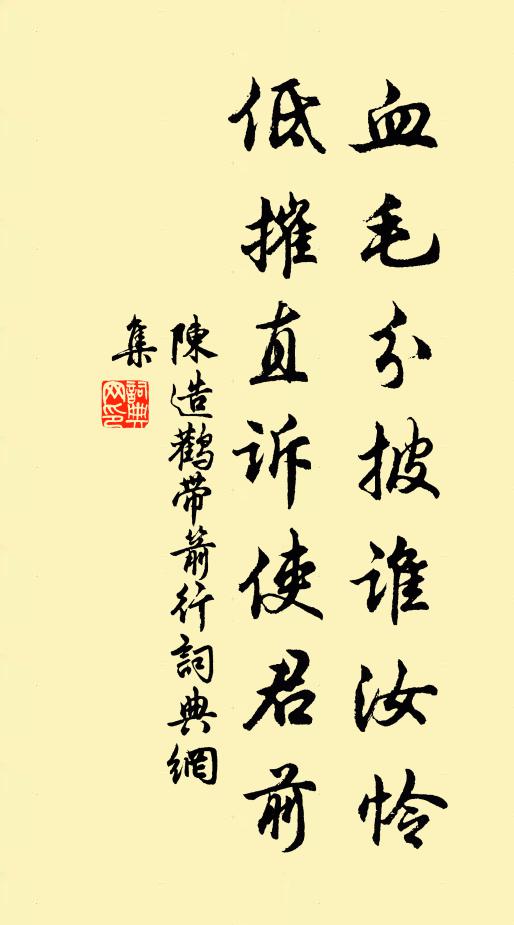 血毛分披谁汝怜
低摧直诉使君前
陳造鹳带箭行詞典網
集
詞典网印